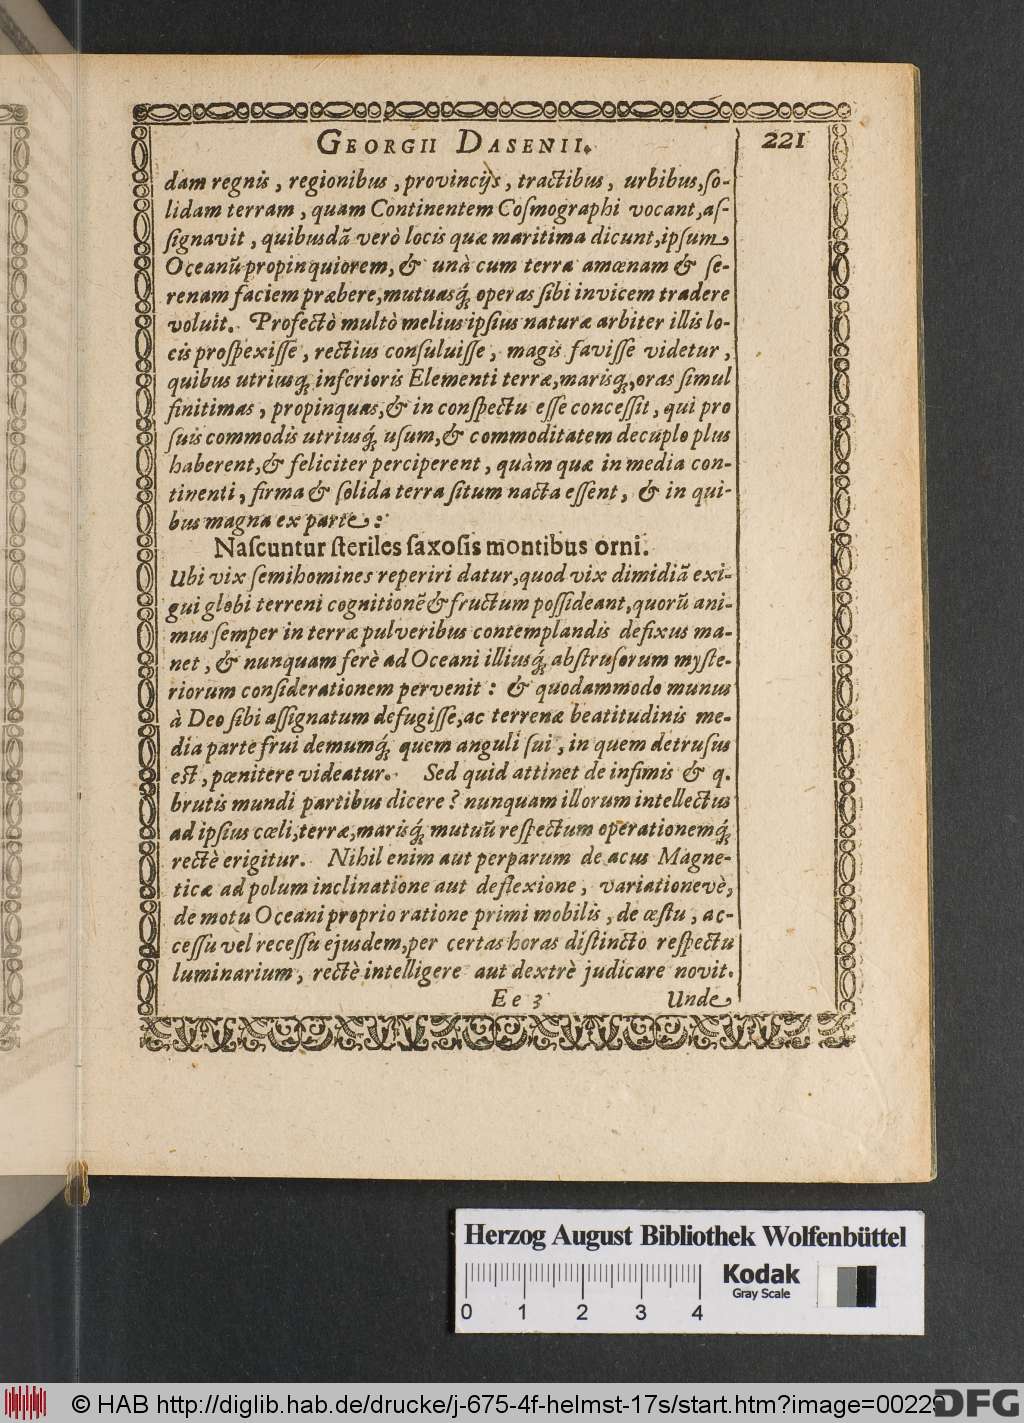 GEORGII DASENII. 221
dam regnis, regionibus, provincijs, tractibus, urbibus, ſo-
lidam terram, quam Continentem Coſmographi vocant, aſ-
ſignavit, quibusdã verò locis quæ maritima dicunt, ipſum
Oceanũ propinquiorem, & unà cum terra amœnam & ſe-
renam faciem præbere, mutuasq́; operas ſibi invicem tradere
voluit. Profectò multò melius ipſius naturæ arbiter illis lo-
cis proſpexiſſe, rectius conſuluiſſe, magis faviſſe videtur,
quibus utriusq; inferioris Elementi terræ, marisq;, oras ſimul
finitimas, propinquas, & in conſpectu eſſe conceſſit, qui pro
ſuis commodis utriusq́; uſum, & commoditatem decuplo plus
haberent, & feliciter perciperent, quàm quæ in media con-
tinenti, firma & ſolida terra ſitum nacta eſſent, & in qui-
bus magna ex parte:
Naſcuntur ſteriles ſaxoſis montibus orni.
Ubi vix ſemihomines reperiri datur, quod vix dimidiã exi-
gui globi terreni cognitionẽ & fructum poſſideant, quorũ ani-
mus ſemper in terræ pulveribus contemplandis defixus ma-
net, & nunquam ferè ad Oceani illiusq́; abſtruſorum myſte-
riorum conſiderationem pervenit: & quodammodo munus
à Deo ſibi aſſignatum defugiſſe, ac terrenæ beatitudinis me-
dia parte frui demumq́; quem anguli ſui, in quem detruſus
eſt, pœnitere videatur. Sed quid attinet de infimis & q.
brutis mundi partibus dicere? nunquam illorum intellectus
ad ipſius cœli, terræ, marisq́; mutuũ reſpectum operationemq́;
rectè erigitur. Nihil enim aut perparum de acus Magne-
ticæ ad polum inclinatione aut deflexione, variationevè,
de motu Oceani proprio ratione primi mobilis, de æſtu, ac-
ceſſu vel receſſu ejusdem, per certas horas diſtincto reſpectu
luminarium, rectè intelligere aut dextrè judicare novit.
Ee 3 Unde
Herzog August Bibliothek Wolfenbüttel
Kodak
Gray Scale
0 1 2 3 4
© HAB http://diglib.hab.de/drucke/j-675-4f-helmst-17s/start.htm?image=00229
DFG